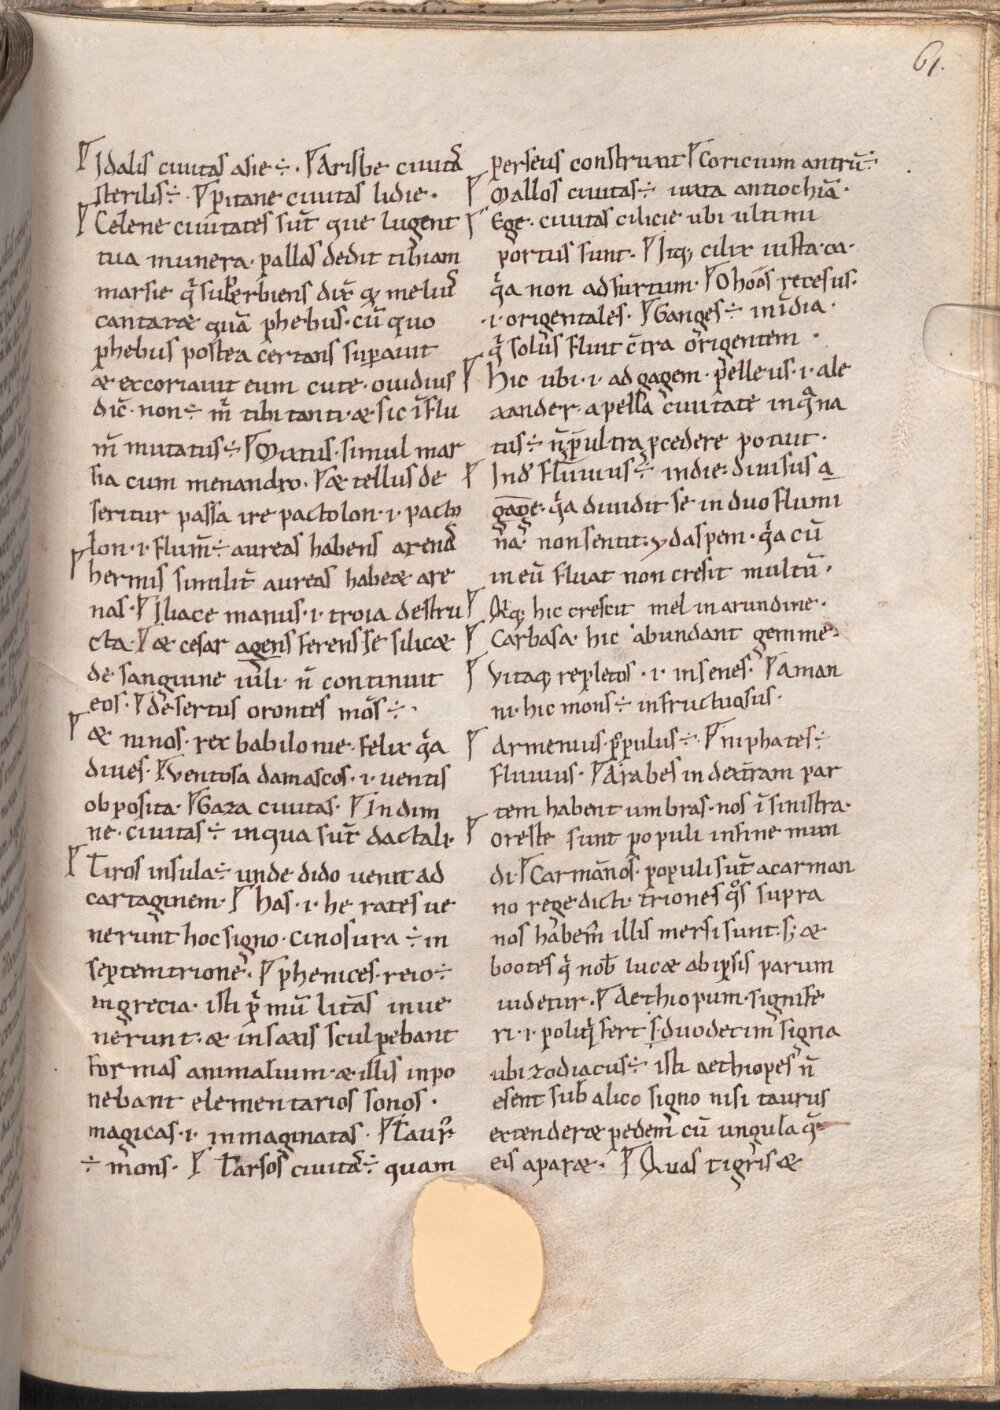 61.
Idalis ciuitas asie ÷. Arisbe ciuitas̄
sterilis ÷. pitane ciuitas lidie.
Celene ciuitates sūt que lugent
tua munera. pallas dedit tibiam
marsie
cantaræ quā phebus. cū quo
phebus postea certans supauit
æ excoriauit eum cute. ouidius
dic̄. non ÷ m̄ tibi tanti. æ sic ī flu
m̄ mutatus ÷ Mixtus. simul mar
sia cum menandro. æ tellus de
feritur passa ire pactolon. i. pacto
lon. i. flum̄ ÷ aureas habens arenas̄
hermis similit̄ aureas habeæ are
nas. Iliace manus. i. troia destru
cta. æ cesar agens ferens se silicæ
de sanguine iuli. n̄ continuit
eos. desertus orontes mōs ÷.
æ ninos. rex babilonie. felix q̄a
diues. Ventosa damascos. i. uentis
obposita. Gaza ciuitas. In dim
ne. ciuitas ÷ in qua sūt dactali.
Tiros insula ÷ unde dido uenit ad
cartaginem. has. i. he rates ue
nerunt hoc signo. cinosura ÷ in
septemtrione. phenices. reio ÷
in grecia. isti p̄mū litt̄as inue
nerunt. æ in saxis sculpebant
formas animalium. æ illis inpo
nebant elementarios sonos.
magicas. i. inmaginatas. Taur̄
÷ mons. Tarsos ciuitas̄ ÷ quam
perseus construxit Coricium antrū ÷
Mallos ciuitas ÷ iuxta antiochiā.
Ege. ciuitas cilicie ubi ultimi
portus sunt. Itq; cilix iusta. ca.
q̄a non ad furtum. Ohōs recesus.
. i. origentales. Ganges ÷ in īdia.
q̄ solus fluit c̄tra origentem.
hic ubi. i. ad gagem. pelleus. i. ale
xander. a pella ciuitate in q̄ na
tus ÷ n̄ pultra pcedere potuit.
Ind' fluuius ÷ indie. diuisus a
gage. q̄a diuidit se in duo flumi
na. non sentit. ydaspem. q̄a cū
in eū fluat non cresit multū.
Atq; hic crescit mel in arundine.
Carbasa. hic abundant gemme.
Vitaq; repletos. i. in senes. Aman
ni. hic mons ÷ infructuosus.
Armenius. p̄opulus ÷. niphates ÷
fluuius. Arabes in dextram par
tem habent umbras. nos ī sinistra.
oreste sunt populi in fine mun
di. Carmanos. populi sūt a carman
no rege dicti. triones q̄s supra
nos habem̄ illis mersi sunt. s; æ
bootes q̄ nob̄ lucæ ab ipsis parum
uidetur. Aethiopum. signife
ri. i. poli q̄ fert duodecim signa
ubi zodiacus ÷ isti aethiopes n̄
esent sub alico signo nisi taurus
extenderæ pedem cū ungula
eis aparæ. Quas tigris æ